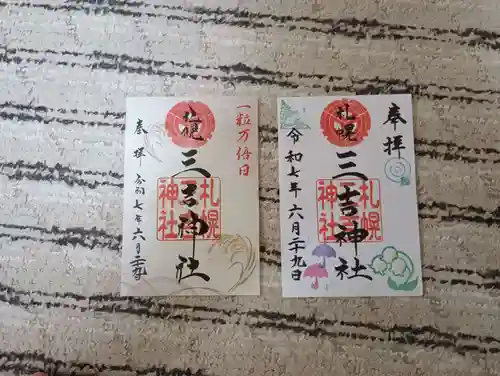 一粒万倍日
奉拝
札幌
三吉神社
札幌
三吉
神社
令和七年六月二十九日
奉拝
札幌
三吉神社
札幌
三吉
神社
令和七年六月二十九日